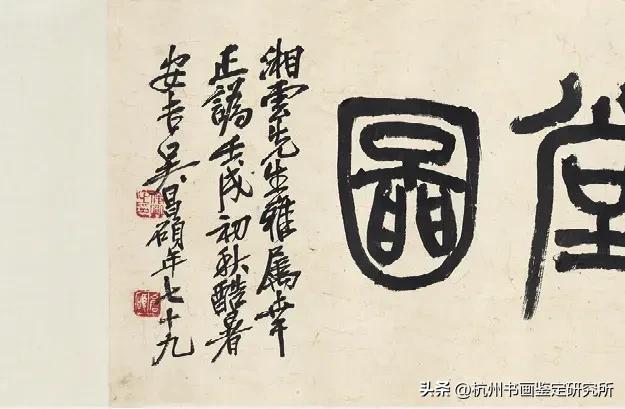 堂圖
湘雲先生雅屬
正譌壬戌初秋酷暑
安吉吳昌碩年七十九
头条 @杭州书画鉴定研究所